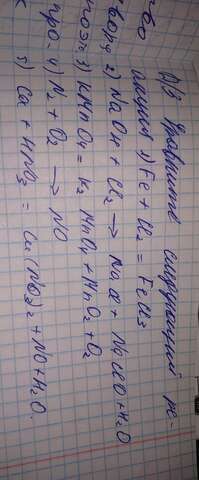 Д/З Уравните следующий ре-
акции 1) Fe + Cl₂ = FeCl₃
2) NaOH + Cl₂ → NaCl + NaClO + H₂O
3) KMnO₄ = K₂MnO₄ + MnO₂ + O₂
4) N₂ + O₂ → NO
5) Cu + HNO₃ = Cu(NO₃)₂ + NO + H₂O.